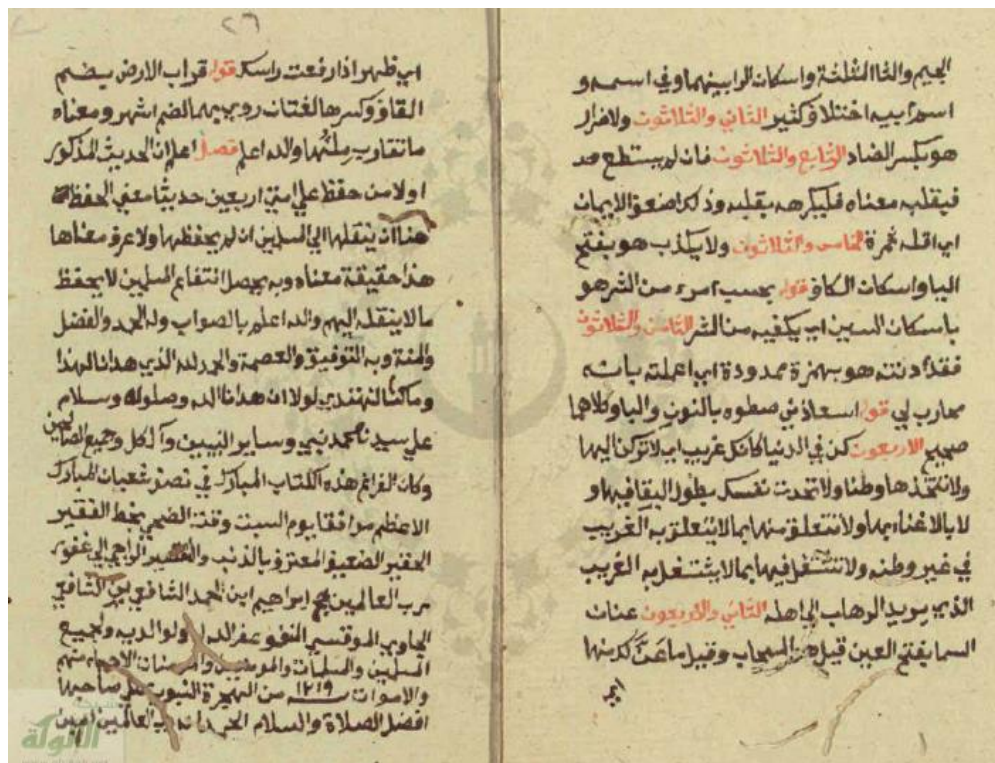 الجيم والثا المثلثة واسكان الرا بينهما وفي اسمه و
اسم ابيه اختلاف كثير الثاني والثلاثون ولا ضرار
هو بكسر الضاد الرابع والثلاثون فان لم يستطع
فبقلبه معناه فليكرهه بقلبه وذلك اضعف الايمان
اي اقله ثمرة الخامس والثلاثون ولا يكذب هو بفتح
اليا واسكان الكاف قوله بحسب امرء من الشر هو
باسكان السين اي يكفيه من الشر الثامن والثلاثون
فقد اذنته هو بهمزة ممدودة اي اعلمته بانه
محارب لي قوله استعاذني ضبطوه بالنون والباو كلاهما
صحيح الاربعون كن في الدنيا كانك غريب اي لا تركن اليها
ولا تتخذها وطنا ولا تحدث نفسك بطول البقا فيها و
لا بالاعتناء بها ولا تتعلق منها بما لا يتعلق به الغريب
في غير وطنه ولا تشتغل فيها بما لا يشتغل به الغريب
الذي يريد الذهاب الى اهله الثاني والاربعون عنان
السما بفتح العين قيل هو السحاب وقيل ما عنّ لك منها
اي
٢٦
اي ظهر اذا رفعت راسك قوله قراب الارض بضم
القاف وكسرها لغتان روي بهما الضم اشهر ومعناه
ما تقارب ملئها والله اعلم فصل اعلم ان الحديث المذكور
اولا من حفظ علي امتي اربعين حديثا معني الحفظ
هنا ان ينقلها الي المسلمين ان لم يحفظها ولا عرف معناها
هذا حقيقة معناه وبه يحصل انتفاع المسلمين لا يحفظ
ما لا ينقله اليهم والله اعلم بالصواب وله الحمد والفضل
والمنة وبه التوفيق والعصمة والحمد لله الذي هدانا لهذا
وما كنا لنهتدي لولا ان هدانا الله وصلوته وسلام
علي سيدنا محمد نبي وساير النبيين وآل كل وجميع الصالحين
وكان الفراغ هذه الكتاب المبارك في نصف شعبان المبارك
الاعظم موافقا يوم السبت وقت الضحي بخط الفقير
الحقير الضعيف المعترف بالذنب والتقصير الراجي الي عفو
رب العالمين ابراهيم ابن احمد الشافعي
غفر الله له ولوالديه ولجميع
المسلمين والمسلمات والمومنين والمومنات الاحياء منهم
والاموات سنة ١٢١٩ من الهجرة النبوية علي صاحبها
افضل الصلاة والسلام الحمد لله رب العالمين امين
الألوكة